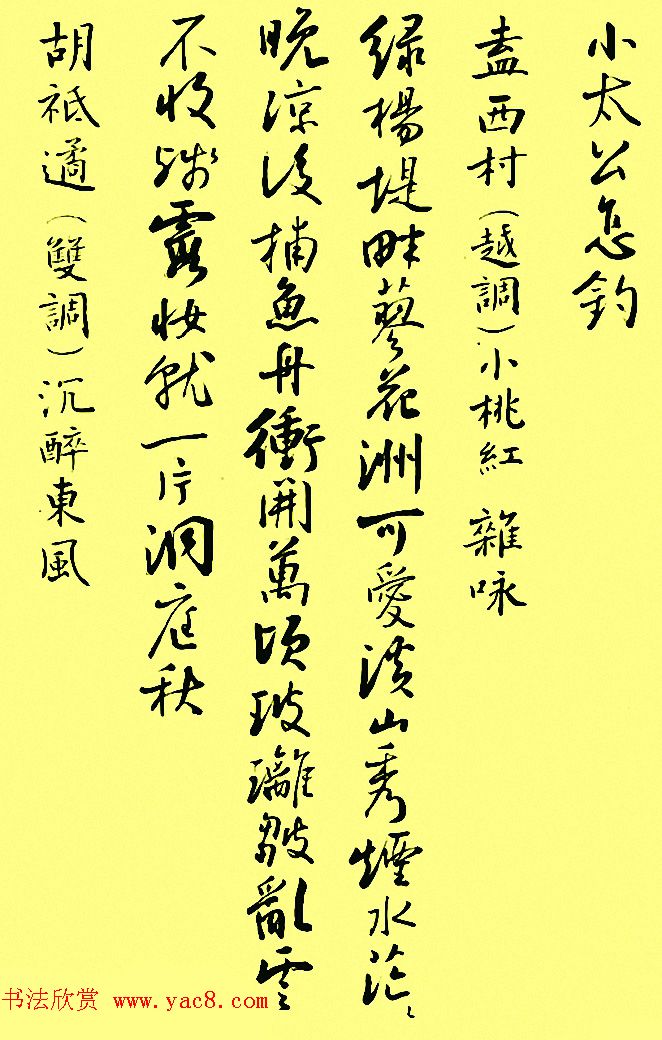 小太公怎釣
盍西村（越調）小桃紅 雜咏
緑楊堤畔蓼花洲可愛溪山秀煙水茫、
晚涼後捕魚舟衝開萬頃玻璃皺亂雲
不收殘霞妝就一片洞庭秋
胡祗遹（雙調）沉醉東風
书法欣赏 www.yac8.com